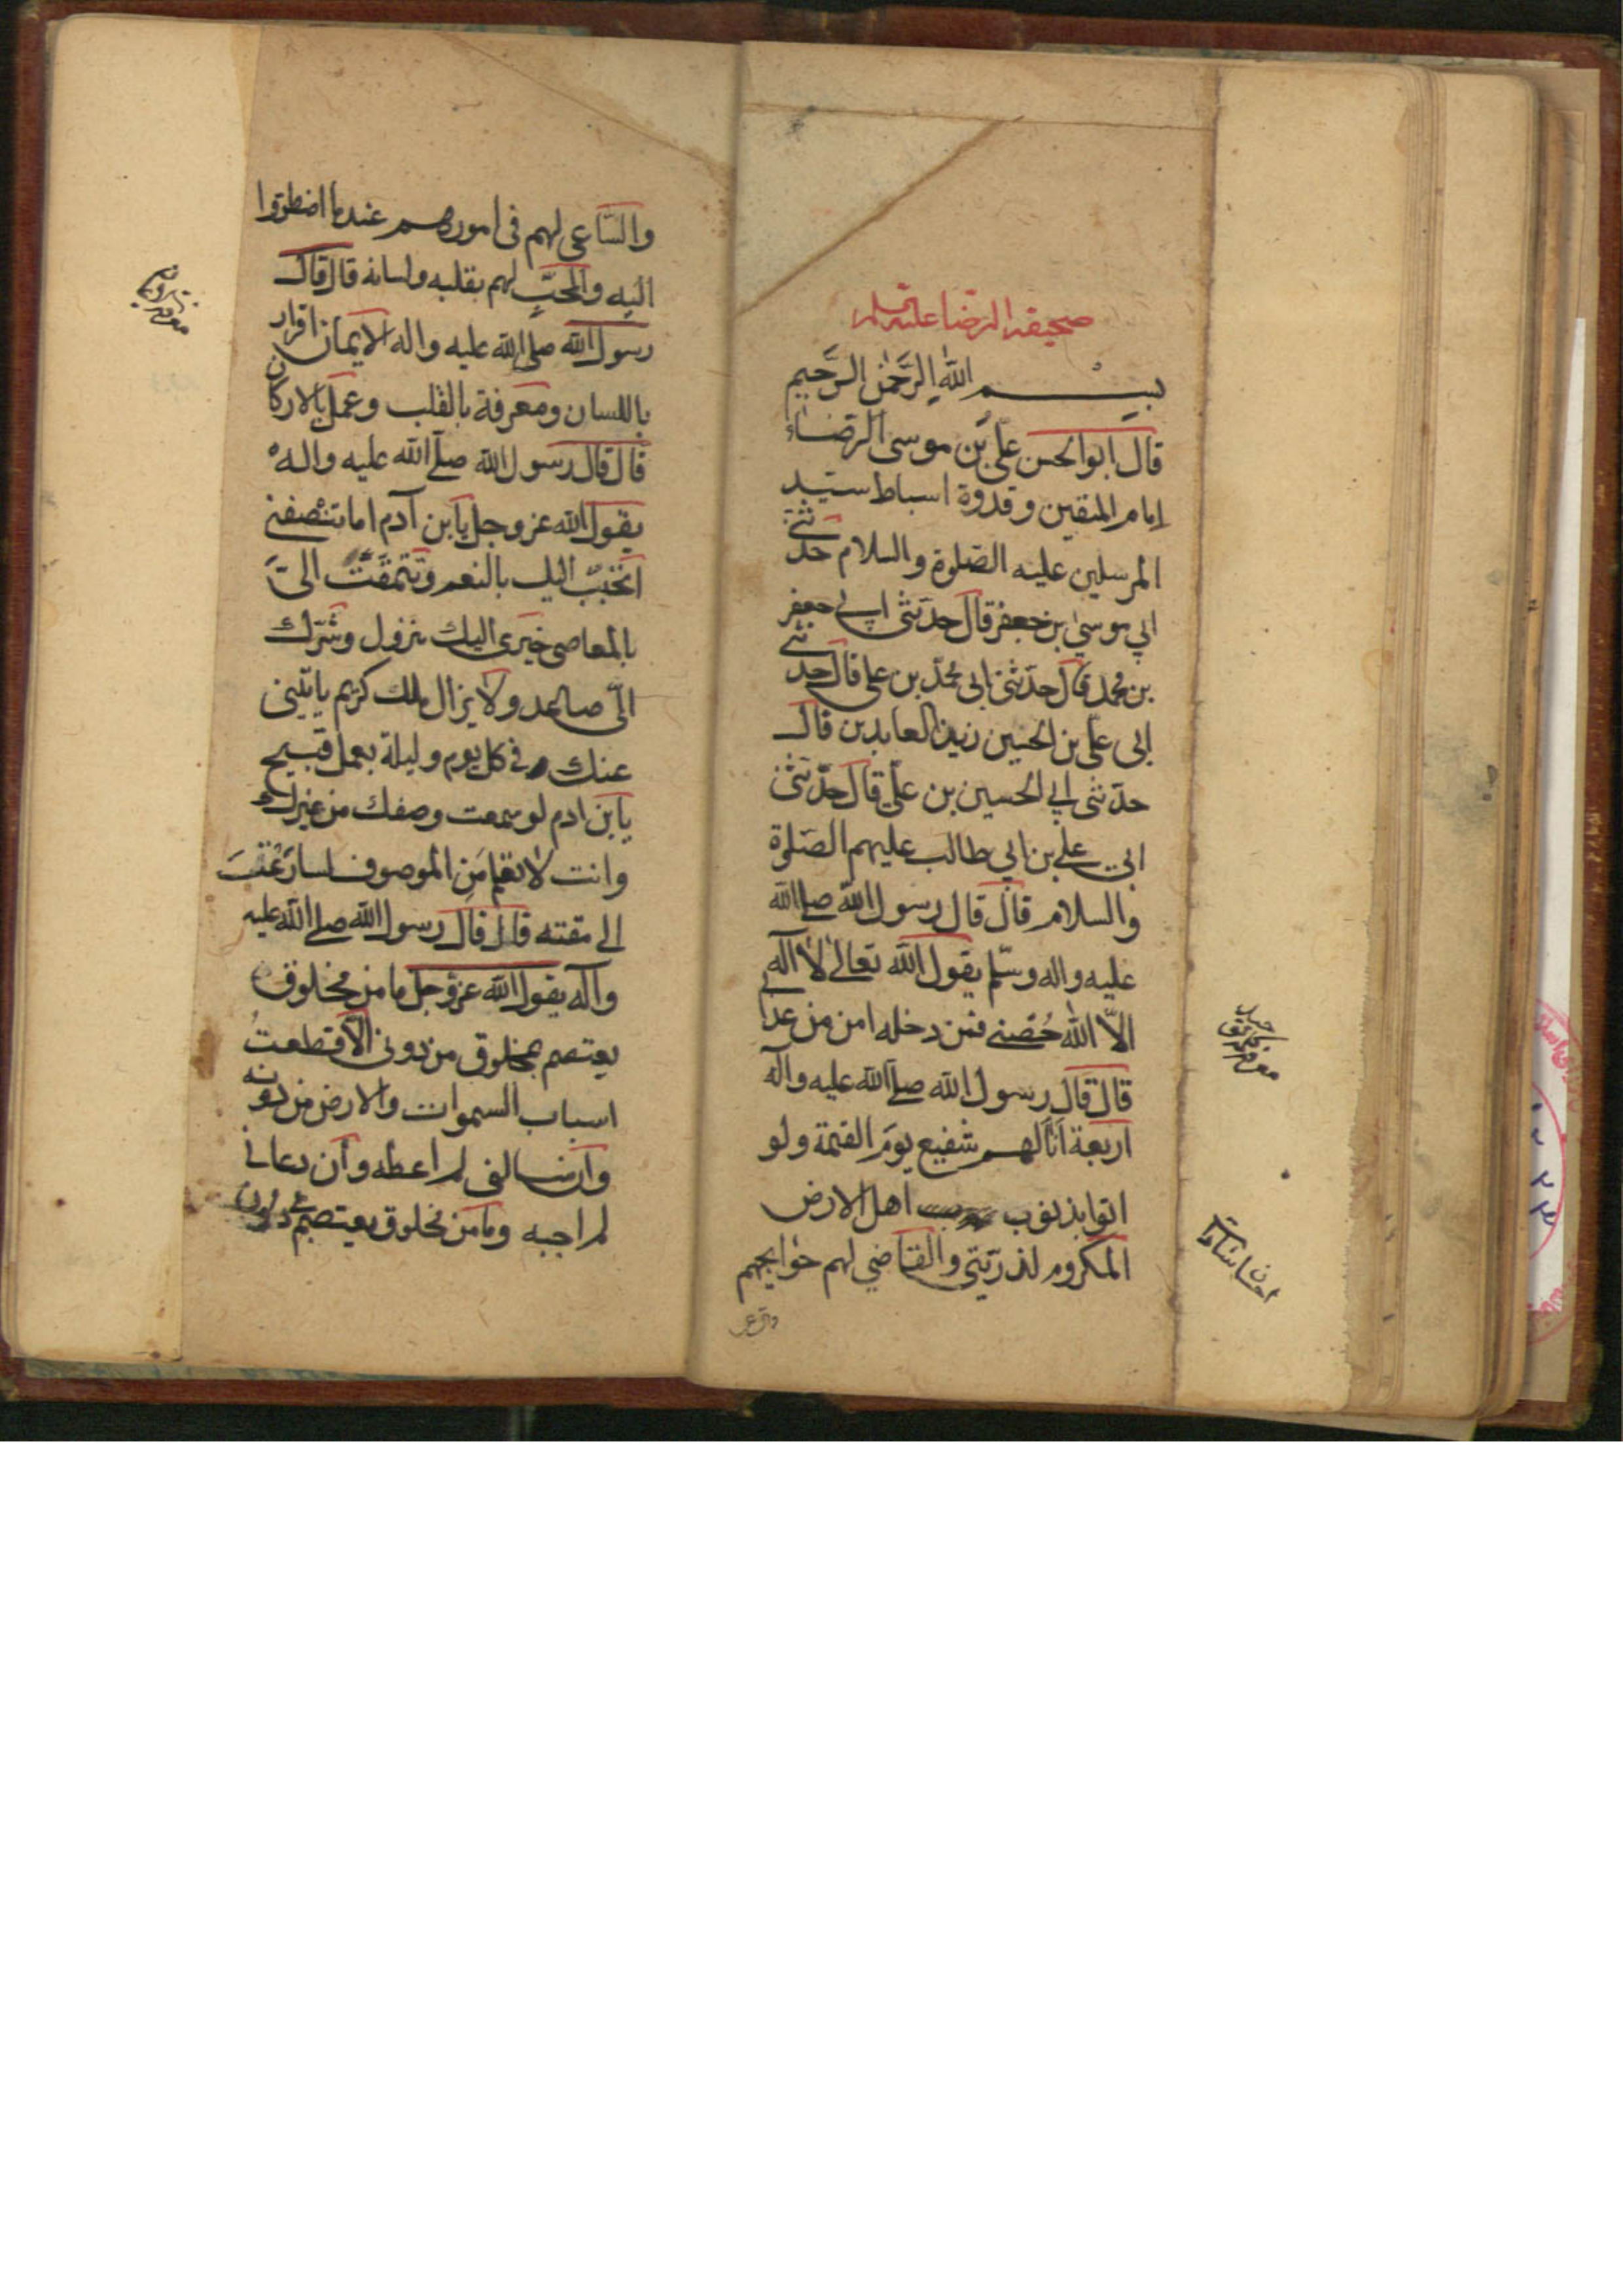 صحيفة الرضا عليه السلم
بسم الله الرحمن الرحيم
قال ابو الحسن علي بن موسى الرضاء
امام المتقين وقدوة اسباط سيد
المرسلين عليه الصلوة والسلام حدثني
ابي موسى بن جعفر قال حدثني ابي جعفر
بن محمد قال حدثني ابي محمد بن علي قال حدثني
ابي علي بن الحسين زين العابدين قال
حدثني ابي الحسين بن علي قال حدثني
ابي علي بن ابي طالب عليهم الصلوة
والسلام قال قال رسول الله صلى الله
عليه واله وسلم يقول الله تعالى لا اله
الا الله حصني فمن دخله امن من عذابي
قال قال رسول الله صلى الله عليه واله
اربعة انا لهم شفيع يوم القيمة ولو
اتوا بذنوب اهل الارض
المكروم لذريتي والقاضي لهم حوايجهم
والساعي لهم في امورهم عندما اضطروا
اليه والمحب لهم بقلبه ولسانه قال قال
رسول الله صلى الله عليه واله الايمان اقرار
باللسان ومعرفة بالقلب وعمل بالاركان
قال قال رسول الله صلى الله عليه واله
يقول الله عز وجل يا بن آدم اما تنصفني
اتحبب اليك بالنعم وتتمقت الي
بالمعاصي خيري اليك نزول وشرك
الي صاعد ولا يزال ملك كريم ياتيني
عنك في كل يوم وليلة بعمل قبيح
يا بن ادم لو سمعت وصفك من غيرك
وانت لا تعلم من الموصوف لسارعت
الى مقته قال قال رسول الله صلى الله عليه
وآله يقول الله عز وجل ما من مخلوق
يعتصم بمخلوق من دوني الا قطعت
اسباب السموات والارض من دونه
وان سالني لم اعطه وان دعاني
لم اجبه وما من مخلوق يعتصم بي دون